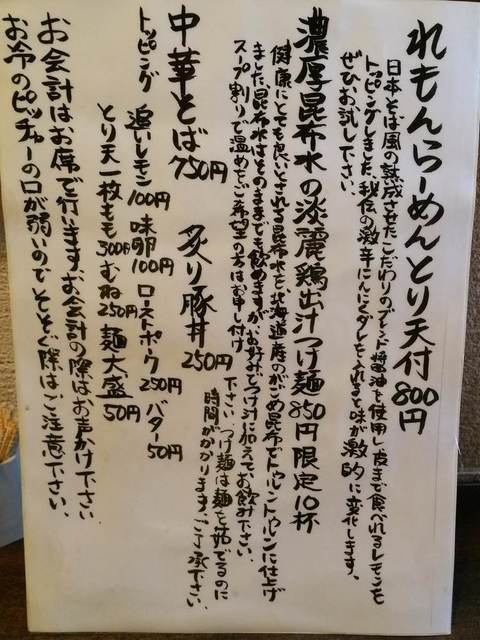 れもんらーめんとり天付800円
日本そば風の熟成させたこだわりのブレンド醤油を使用し皮まで食べれるレモンも
トッピングしました、秘伝の激辛にんにくダレを入れると味が激的に変化します、
ぜひお試し下さい、
濃厚昆布水の淡麗鶏出汁つけ麺850円限定10杯
健康にとても良いとされる昆布水を、北海道産のがごめ昆布でトゥルントゥルンに仕上げ
ました昆布水はそのままでも飲めますが、お好みでつけ汁に加えてお飲み下さい、
スープ割りで温めをご希望の方はお申し付け
下さい、つけ麺は麺を茹でるのに
時間がかかります、ご了承下さい、
中華そば750円 炙り豚丼250円
トッピング 追いレモン100円 味卵100円 ローストポーク250円 バター50円
とり天一枚もも300円むね250円 麺大盛50円
お会計はお席で行います、お会計の際はお声かけ下さい
お冷のピッチャーの口が弱いのでそそぐ際はご注意下さい、